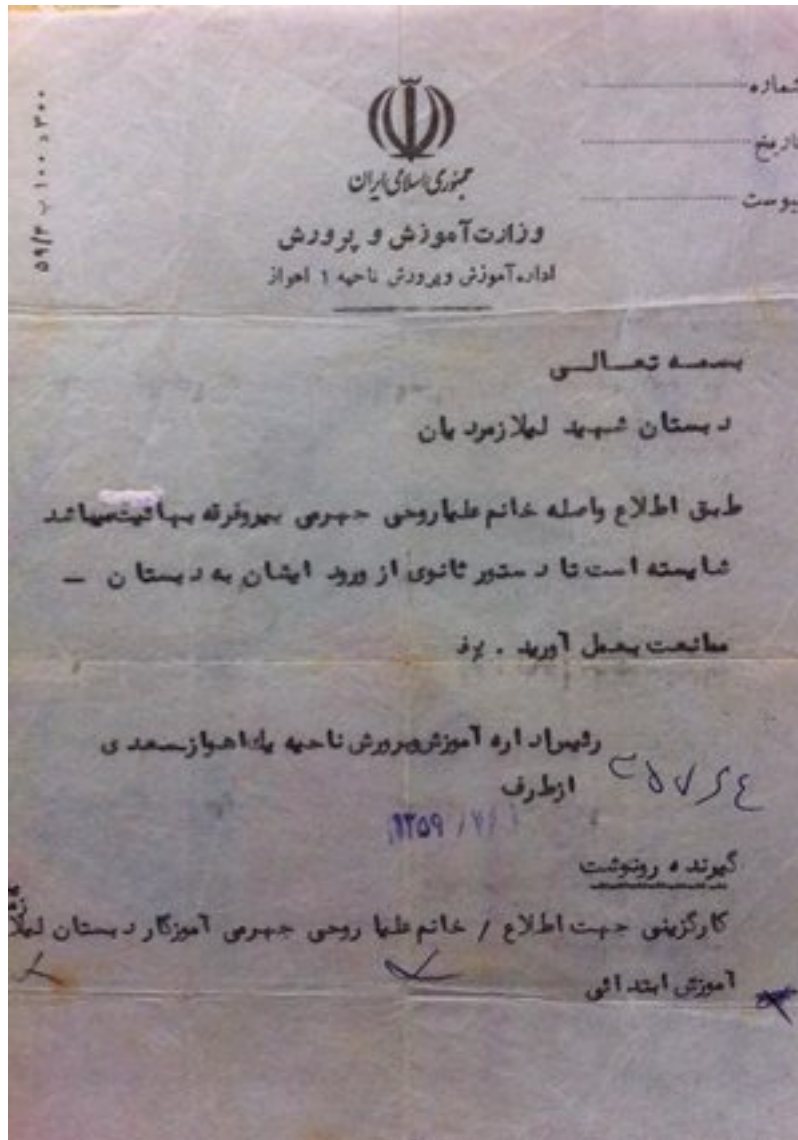 شماره
تاریخ
پیوست
۳۰۰ د ۱۰۰ ب ۵۹/۴
جمهوری اسلامی ایران
وزارت آموزش و پرورش
اداره آموزش و پرورش ناحیه ۱ اهواز
بسمه تعالی
دبستان شهید لیلا زمردیان
طبق اطلاع واصله خانم علیا روحی جهرمی پیرو فرقه بهائیت میباشد
شایسته است تا دستور ثانوی از ورود ایشان به دبستان –
ممانعت بعمل آورید .
رئیس اداره آموزش و پرورش ناحیه یک اهواز سعدی
از طرف
۱۳۵۹
گیرنده رونوشت
کارگزینی جهت اطلاع / خانم علیا روحی جهرمی آموزگار دبستان لیلا
آموزش ابتدائی